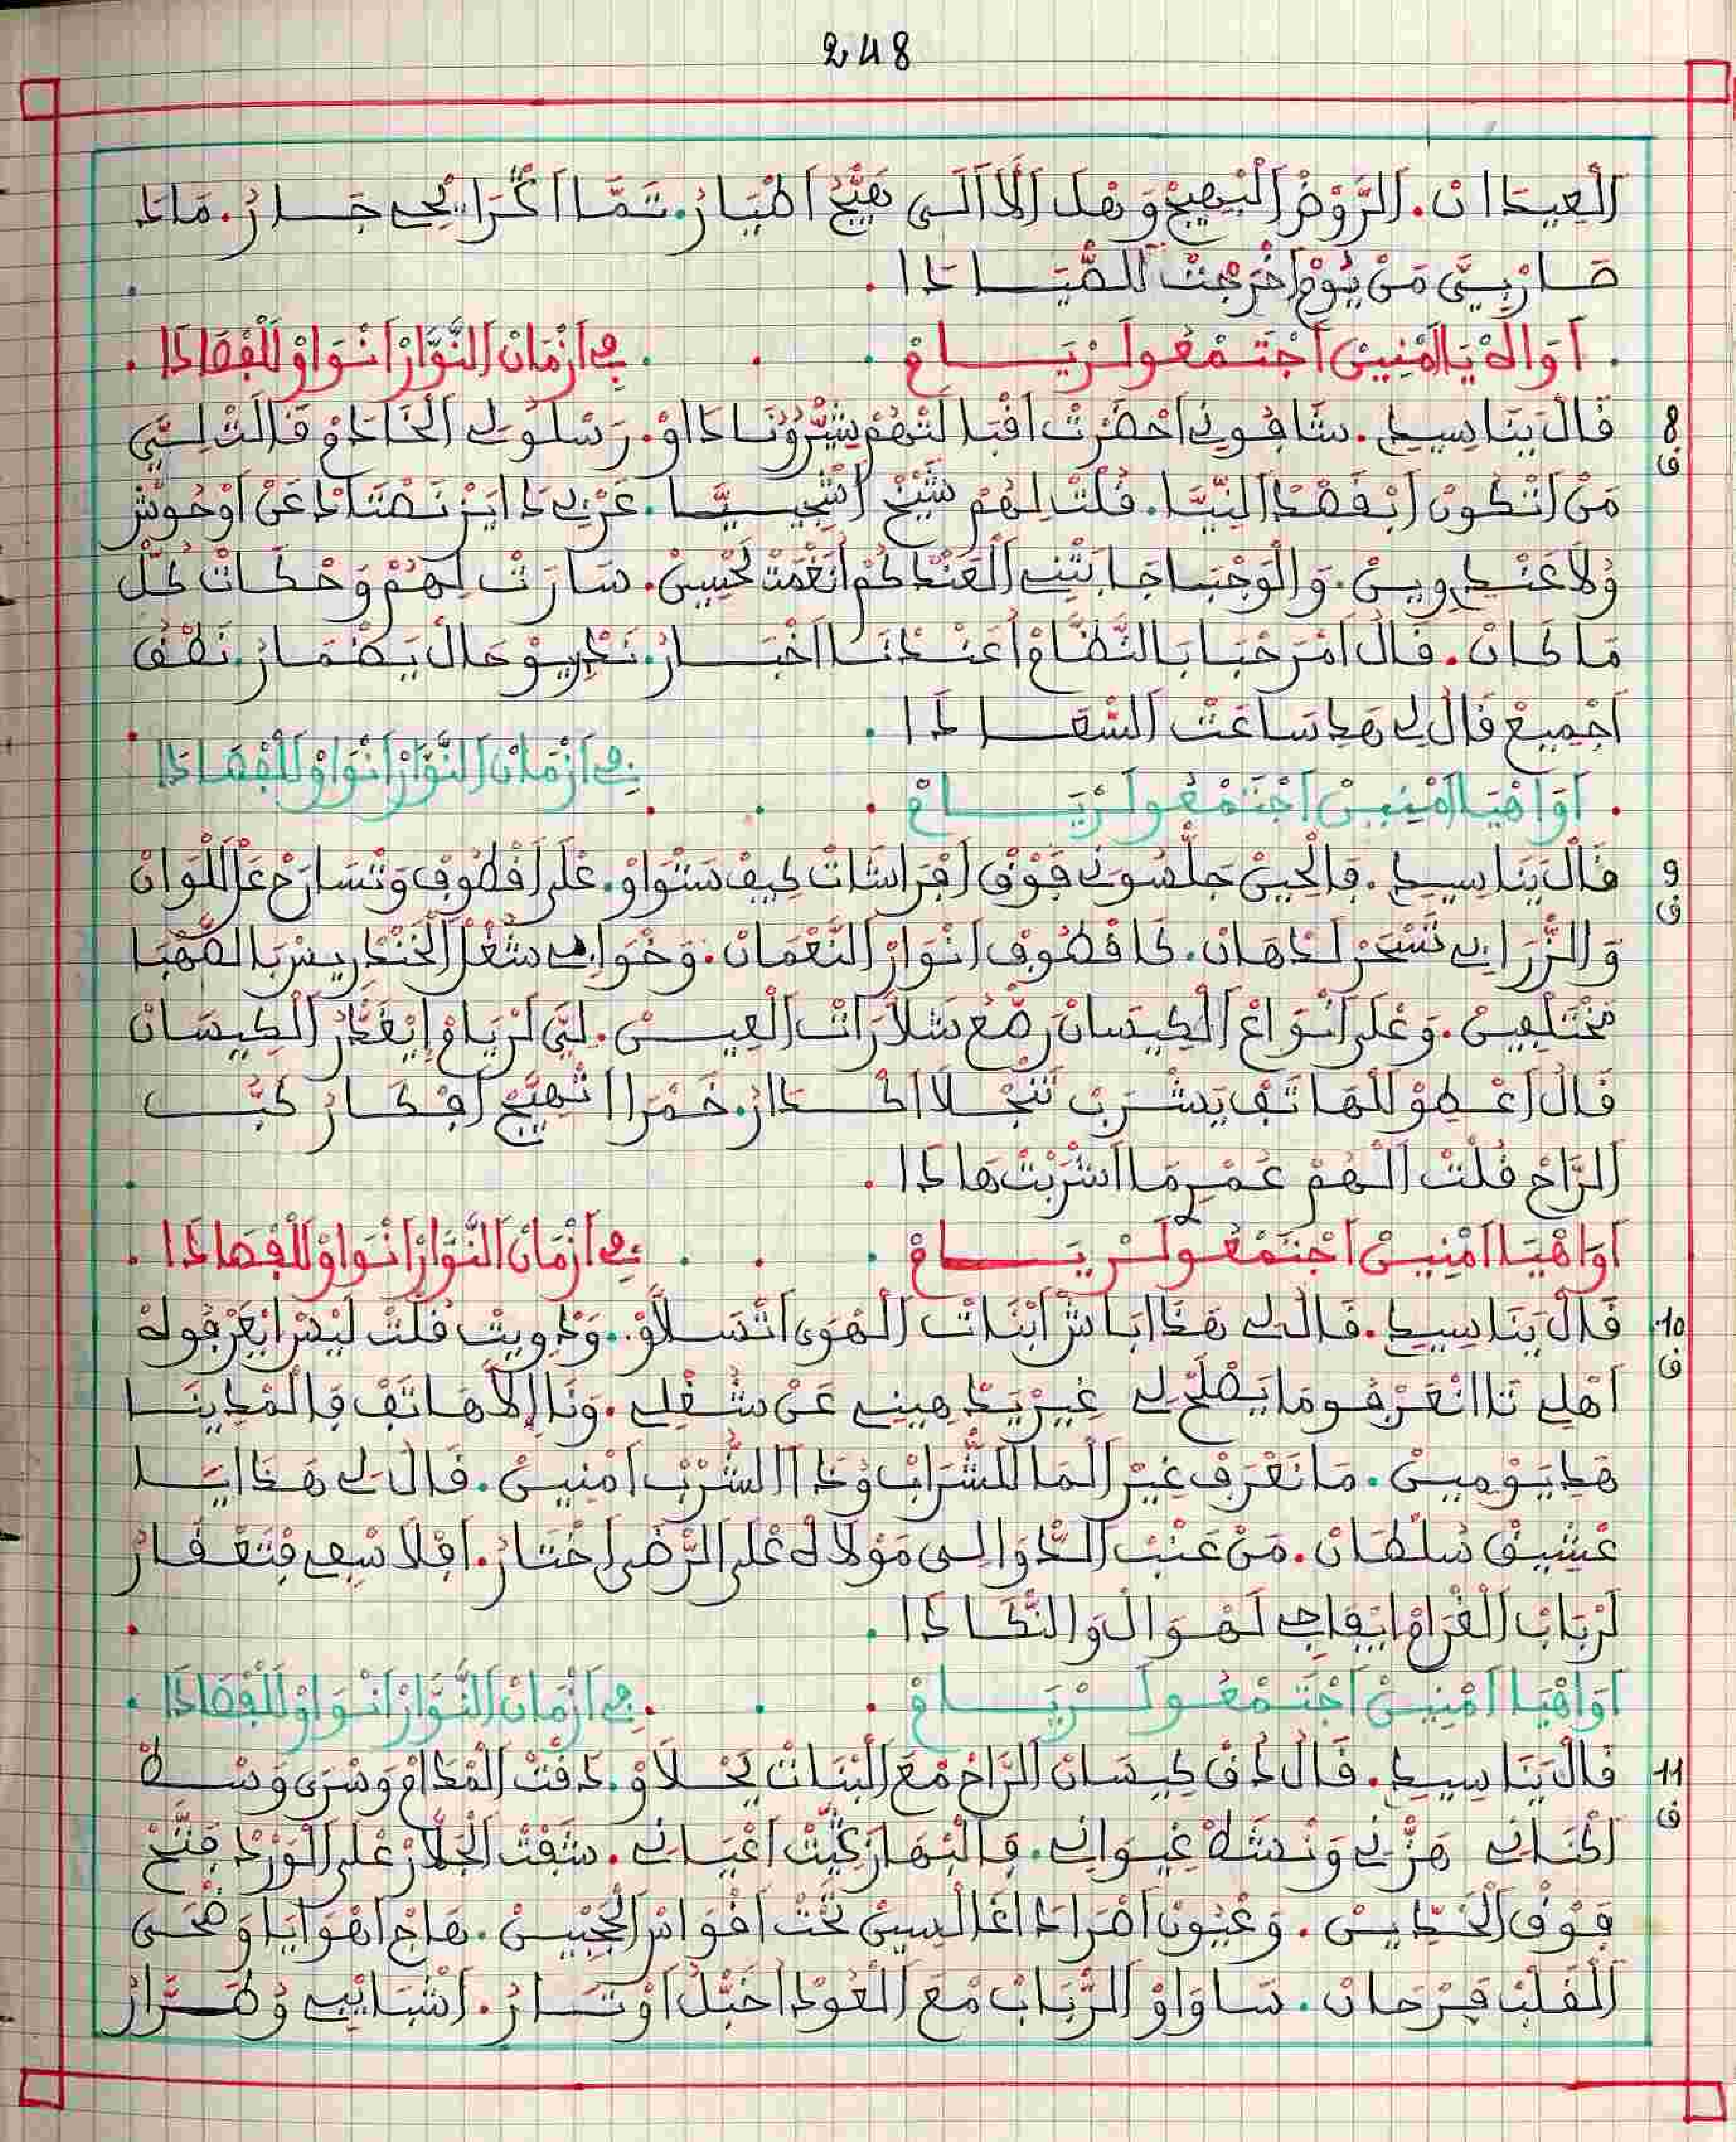 248
اَلْعِيدَانْ. اَلرَّوْضْ اَلْبْهِيجْ وَهْلَ اَلاَّلَى هَيَّجْ اَطْيَارْ. تَمَّا اَكْرَا لِي جَارْ. مَاذَا
صَارْ بِيَّ مَنْ يُومْ اَخْرَجْتْ لَلصَّيَادَا.
. اَوَاهْ يَا اَمْنِينْ اَجْتَمْعُو لَرْيَامْ . . . فِي اَزْمَانْ اَلنُّوَّارْ اَنْوَاوْ لَلْفْصَادَا.
8
ف
قَالْ يَنَا سِيدِي. شَافُونِي اَحْضَرْتْ اَقْبَالَتْهُمْ يَشَّرُونَادَاوْ. رَسْلُو لِي اَلْخَادَمْ قَالَتْ لِيَّ
مَنْ اَتْكُونْ اَبْقَصْدْ اَلنِّيَّا. قُلْتْ لِهُمْ شَيْخْ اَشْجِيَّا. عَزْبِي دَايَزْ نَصْتَادْ عَنْ اَوْحُوشْ
وُلاَ عَنْدِي وِينْ. وَالْوَجْبَا جَابَتْنِي اَلْعَنْدْكُمْ اَنْغَمْتْ لَحْسِينْ. سَارَتْ لِهُمْ وَحْكَاتْ كُلّْ
مَا كَانْ. قَالْ اَمْرَحْبَا بَالنَّظَّامْ اَعَنْدْنَا اَخْبَارْ. نَدْرِيوْ حَالْ يَضْمَارْ. نَطْقْ
اَجْمِيعْ قَالْ لِي هَدِي سَاعَتْ اَلسّْعَادَا.
. اَوَاهْيَا اَمْنِينْ اَجْتَمْعُو لَرْيَامْ . . . فِي اَزْمَانْ اَلنُّوَّارْ اَنْوَاوْ لَلْفْصَادَا.
9
ف
قَالْ يَنَا سِيدِي. فَالْحِينْ جَلْسُونِي فَوْقْ اَفْرَاشَاتْ كِيفْ سَتْوَاوْ. عْلَى اَقْطُوفْ وَتْسَارَحْ عَ اَللْوَانْ
وَالزّْرَابِي تَسْحَرْ لَدْهَانْ. كَاقْطُوفْ اَنْوَارْ اَلنَّعْمَانْ. وَخْوَابِي شُغْلْ اَلْخَنْدْرِيسْ بَالصَّهْبَا
مَخْتَلْفِينْ. وَعْلَى اَنْوَاعْ اَلْكِيسَانْ رَصّْعْ سَلاَّرَاتْ اَلْعِينْ. لَيَّ لَرْيَامْ اِيْقَدّْرْ اَلْكِيسَانْ
قَالْ اَعْطِوْ لَلْهَاتَفْ يَشْرَبْ تَنْجْلاَ اَكْدَارْ. خَمْرَا اَتْهَيَّجْ اَفْكَارْ كَبّْ
اَلرَّاحْ قُلْتْ اَلْهُمْ عَمْرِي مَا اَشْرَبْتْ هَادَا.
اَوَاهْيَا اَمْنِينْ اَجْتَمْعُو لَرْيَامْ . . . فِي اَزْمَانْ اَلنُّوَّارْ اَنْوَاوْ لَلْفْصَادَا.
10
ف
قَالْ يَنَا سِيدِي. قَالْ لِي هَدَا اَبَاشْ اَبْنَاتْ اَلْهْوَى اَتْسَلاَّوْ. وَدْوِيتْ قُلْتْ لَيْسْ اَيْعَرْفُوهْ
اَهْلِي تَا اَنْعَرْفُو مَا يَصْلَحْ لِي غِيرْ يَدْهِينِي عَنْ شُغْلِي. وَنَا اِلاَّ هَاتَفْ فَالْمْدِينَا
هَدِي يَوْمِينْ. مَا نَعْرَفْ غِيرْ اَلْمَا لَلشّْرَابْ وُدَا اَلشُّرْبْ اَمْنِينْ. قَالْ لِي هَدَا يَا
عْشِيقْ سُلْطَانْ. مَنْ عَنْبْ اَلدّْوَالِي مَوْلاَهْ عْلَى اَلرّْضَى اَخْتَارْ. اَفْلاَسْ فِي فَتْعْفَارْ
لَرْبَابْ اَلْغْرَامْ اِيْفَاجِي لَهْوَالْ وَالنّْكَادَا.
اَوَاهْيَا اَمْنِينْ اَجْتَمْعُو لَرْيَامْ . . . فِي اَزْمَانْ اَلنُّوَّارْ اَنْوَاوْ لَلْفْصَادَا.
11
ف
قَالْ يَنَا سِيدِي. قَالْ دُقْ كِيسَانْ اَلرَّاحْ مْعَ اَلْبْنَاتْ يَحْلاَوْ. دَقْتْ اَلْمْدَامْ وَسْرَى وَسْطْ
اَكْنَانِي هَزّْنِي وَنْشَطْ غِيوَانِي. فَالْبْهَا رَكّْبْتْ اَعْيَانِي. شَفْتْ اَلْجَلاَّرْ عْلَى اَلْوَرْدْ فَتَّحْ
فَوْقْ اَلْخَدِّينْ. وَعْيُونْ اَمْرَادْ اَغَالْسِينْ تَحْتْ اَقْوَاسْ اَلْجْبِينْ. هَاجْ اَهْوَايَا وَضْحَى
اَلْقَلْبْ فَرْحَانْ. سَاوَاوْ اَلرّْبَابْ مْعَ اَلْعُودْ اَخْبَلْ اَوْتَارْ. اَشْبَايْبِي وُطَرَّارْ